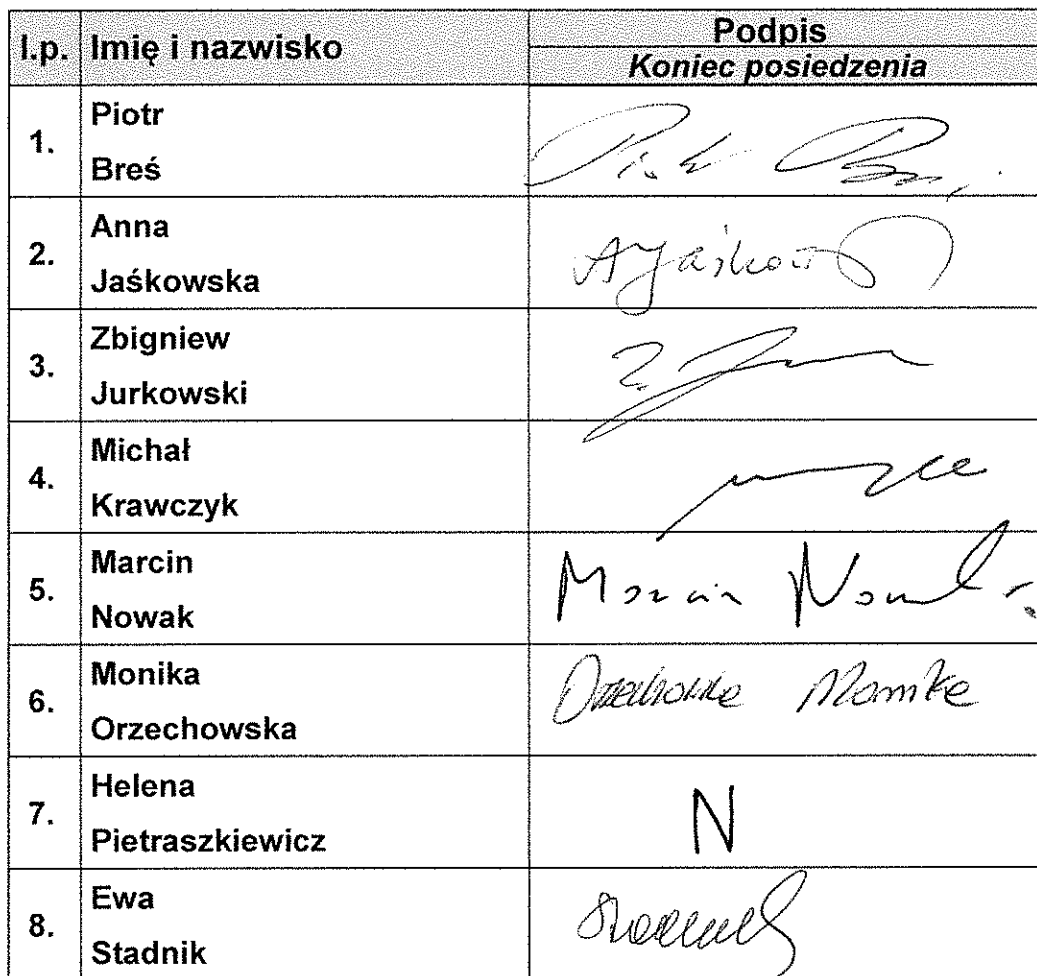 l.p. Imię i nazwisko Podpis
Koniec posiedzenia
1. Piotr
Breś
2. Anna
Jaśkowska
3. Zbigniew
Jurkowski
4. Michał
Krawczyk
5. Marcin
Nowak
Marcin Nowak
6. Monika
Orzechowska
Orzechowska Monika
7. Helena
Pietraszkiewicz
N
8. Ewa
Stadnik